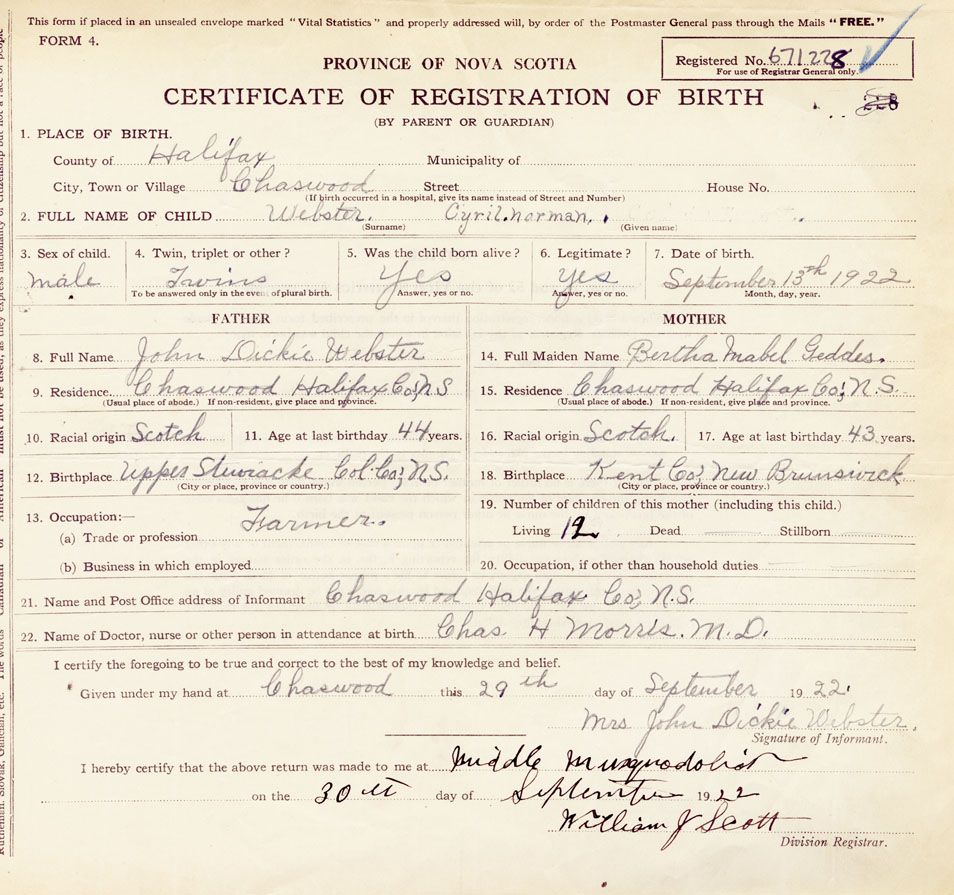 This form if placed in an unsealed envelope marked "Vital Statistics" and properly addressed will, by order of the Postmaster General pass through the Mails "FREE."
FORM 4.
Registered No. 671228
For use of Registrar General only.
PROVINCE OF NOVA SCOTIA
CERTIFICATE OF REGISTRATION OF BIRTH
228
(BY PARENT OR GUARDIAN)
1. PLACE OF BIRTH.
County of Halifax Municipality of
City, Town or Village Chaswood Street House No.
(If birth occurred in a hospital, give its name instead of Street and Number)
2. FULL NAME OF CHILD Webster. Cyril. norman.
(Surname) (Given name)
3. Sex of child. 4. Twin, triplet or other? 5. Was the child born alive? 6. Legitimate? 7. Date of birth.
male Twins Yes Yes September 13th 1922
To be answered only in the event of plural birth. Answer, yes or no. Answer, yes or no. Month, day, year.
FATHER MOTHER
8. Full Name John Dickie Webster 14. Full Maiden Name Bertha Mabel Geddes.
9. Residence. Chaswood Halifax Co; N.S 15. Residence Chaswood Halifax Co; N.S.
(Usual place of abode.) If non-resident, give place and province. (Usual place of abode.) If non-resident, give place and province.
10. Racial origin Scotch 11. Age at last birthday 44 years. 16. Racial origin Scotch. 17. Age at last birthday 43 years.
12. Birthplace Upper Stewiacke Col. Co; N.S. 18. Birthplace Kent Co; New Brunswick
(City or place, province or country.) (City or place, province or country.)
13. Occupation:— Farmer. 19. Number of children of this mother (including this child.)
(a) Trade or profession Living 12 Dead Stillborn
(b) Business in which employed 20. Occupation, if other than household duties
21. Name and Post Office address of Informant Chaswood Halifax Co; N.S.
22. Name of Doctor, nurse or other person in attendance at birth Chas H Morris. M.D.
I certify the foregoing to be true and correct to the best of my knowledge and belief.
Given under my hand at Chaswood this 29th day of September 1922.
Mrs John Dickie Webster.
Signature of Informant.
I hereby certify that the above return was made to me at Middle Musquodoboit
on the 30th day of September 1922
William J Scott
Division Registrar.